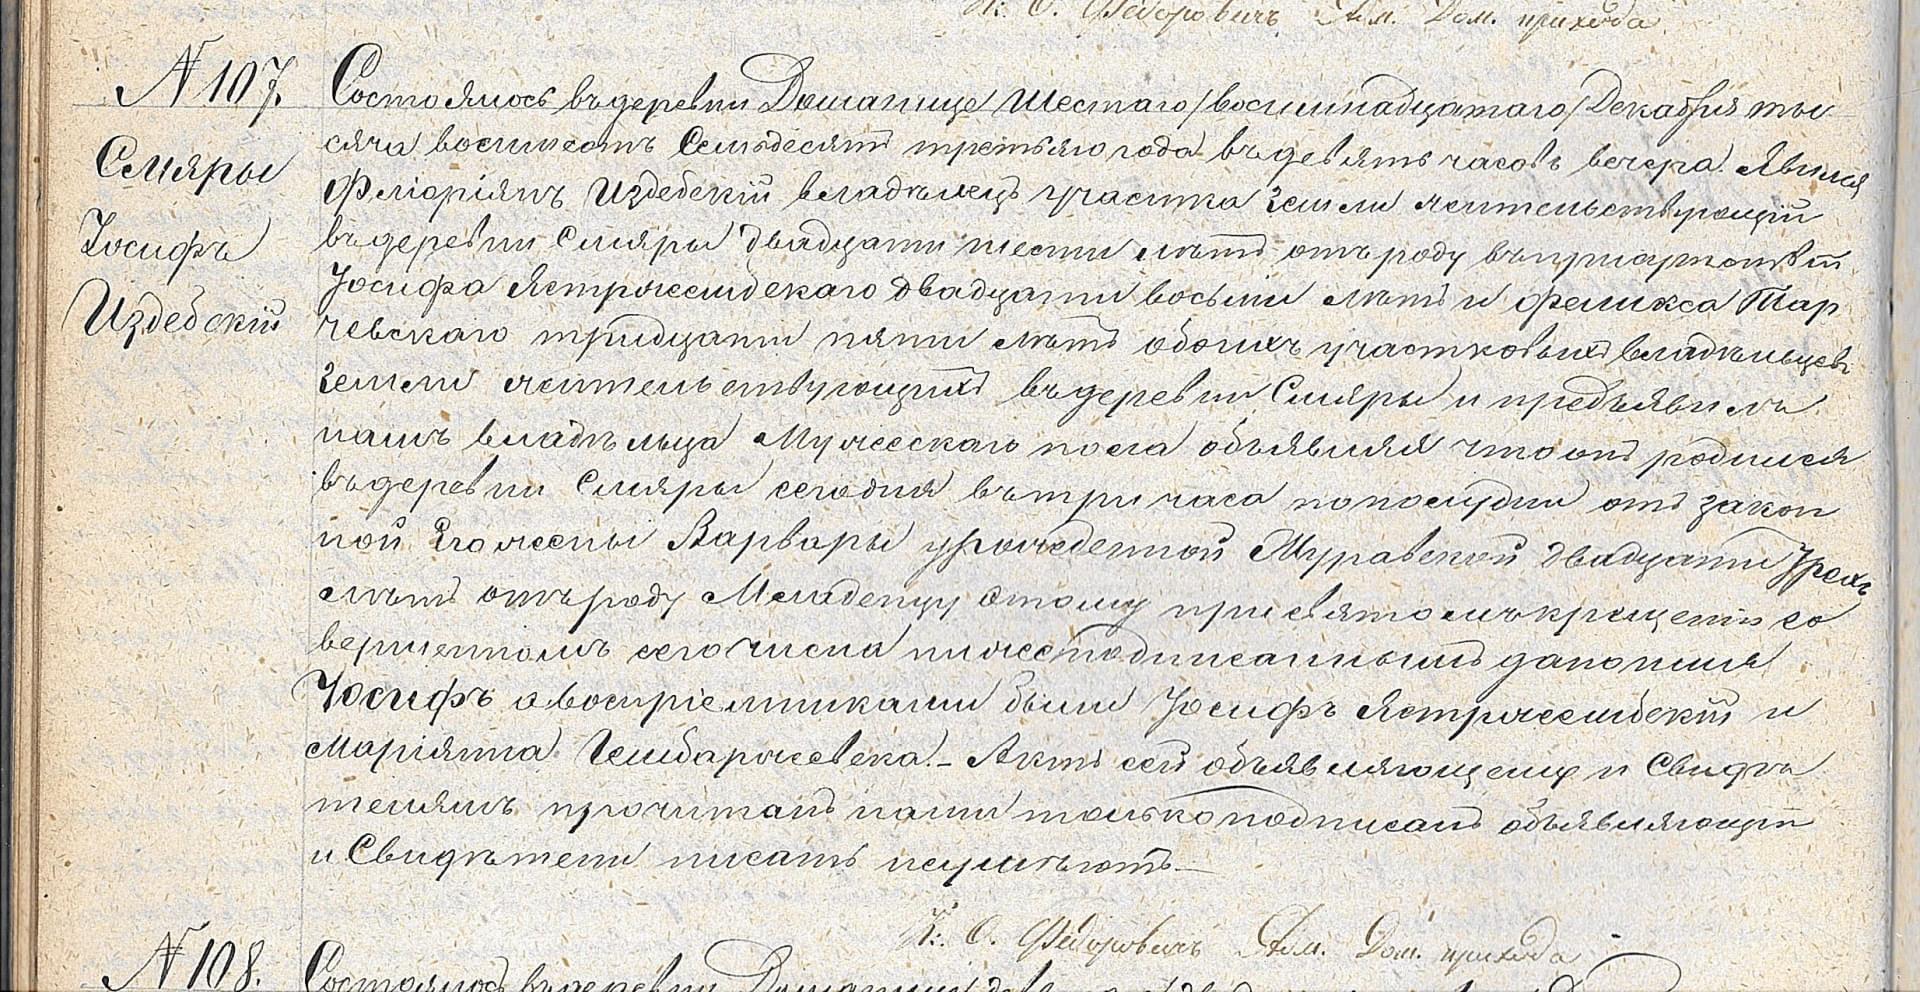 К. О. Федоровичъ Адм. Дом. прихода
N 107.
Смяры
Іосифъ
Издебскій
Состоялось въ деревни Домапице Шестаго /восемнадцатаго/ Декабря ты
сячи восемсотъ Семьдесятъ третьяго года въ девять часовъ вечера. Явился
Флоріянъ Издебскій владѣлецъ участка земли жительствующій
въ деревни Смяры двадцати шести лѣтъ отъ роду въ присутствіи
Іосифа Ястржембскаго двадцати восьми лѣтъ и Феликса Тар
чевскаго тридцати пяти лѣтъ обоихъ участковыхъ владѣльцевъ
земли жительствующихъ въ деревни Смяры и предъявилъ
намъ владѣльца Мужескаго пола объявляя что онъ родился
въ деревни Смяры сегодня въ три часа пополудни отъ закон
ной Его жены Варвары урожденной Муравской двадцати трехъ
лѣтъ отъ роду Младенцу этому при святомъ крещеніи со
вершенномъ сего числа нижеподписаннымъ дано имя
Іосифъ а воспріемниками были Іосифъ Ястржембскій и
Маріянна Гембаржевска. – Актъ сей объявляющему и Свидѣ
телямъ прочитанъ нами только подписанъ объявляющій
и Свидѣтели писать неумѣютъ –
К. О. Федоровичъ Адм. Дом. прихода
N 108.
Состоялось въ деревни